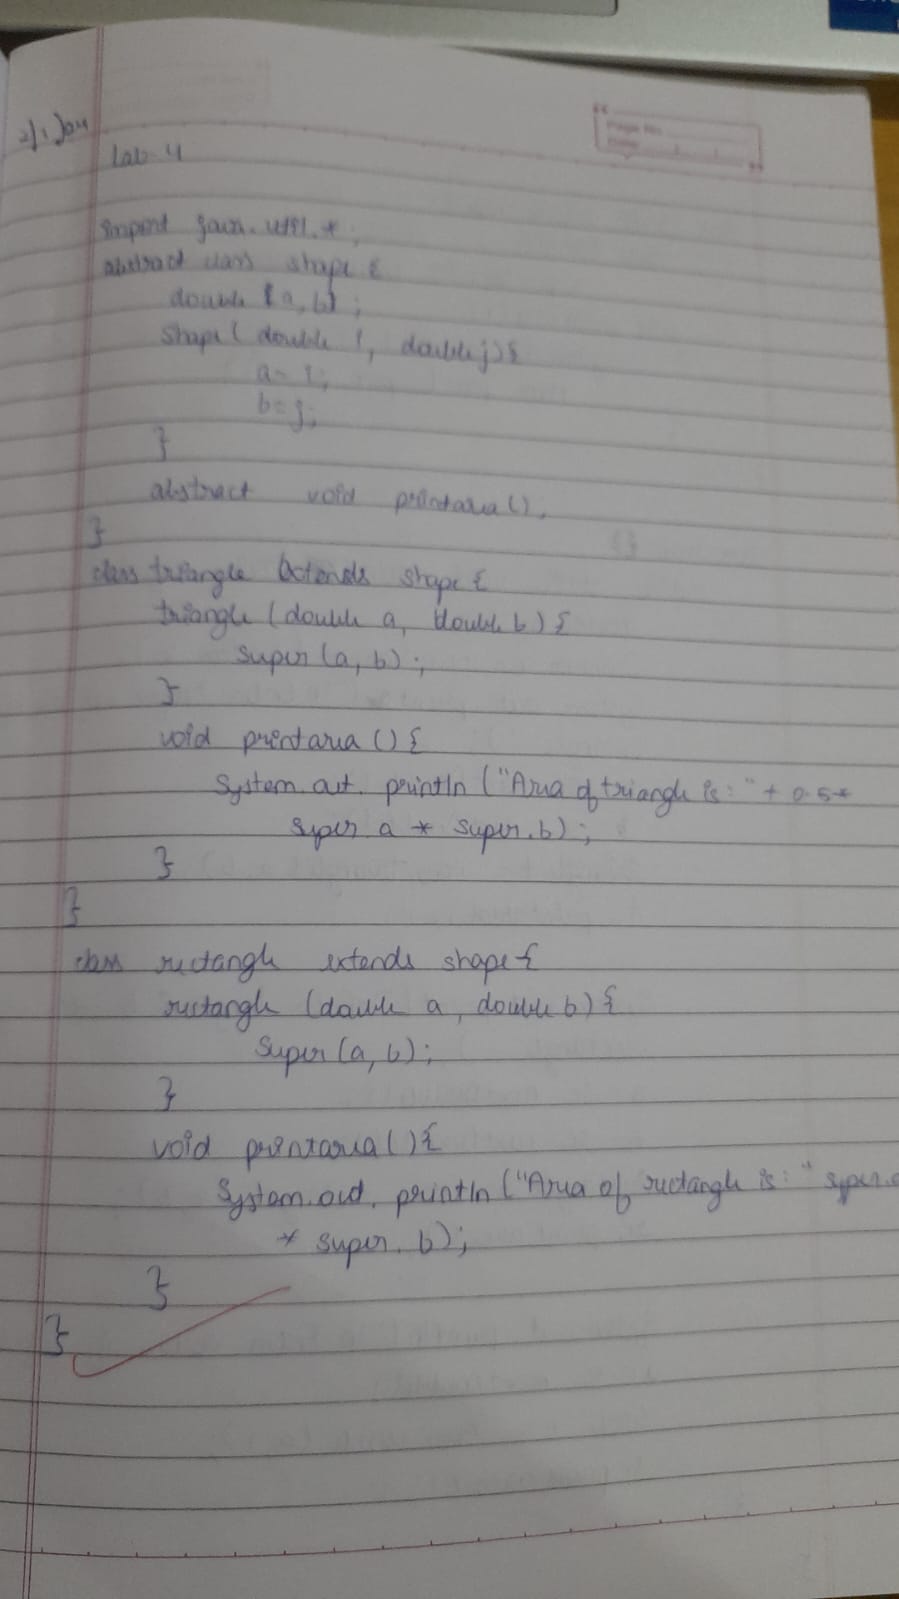 Lab 4
import java.util.*;
abstract class shape {
double a, b;
Shape( double i, double j){
a= i;
b=j;
}
abstract void printarea();
}
class triangle extends shape {
triangle (double a, double b) {
super (a, b);
}
void printarea () {
System.out.println ("Area of triangle is: " + 0.5*
super a * super.b);
}
}
class rectangle extends shape {
rectangle (double a, double b) {
Super (a, b);
}
void printarea () {
System.out.println ("Area of rectangle is: " super.a
* super.b);
}
}